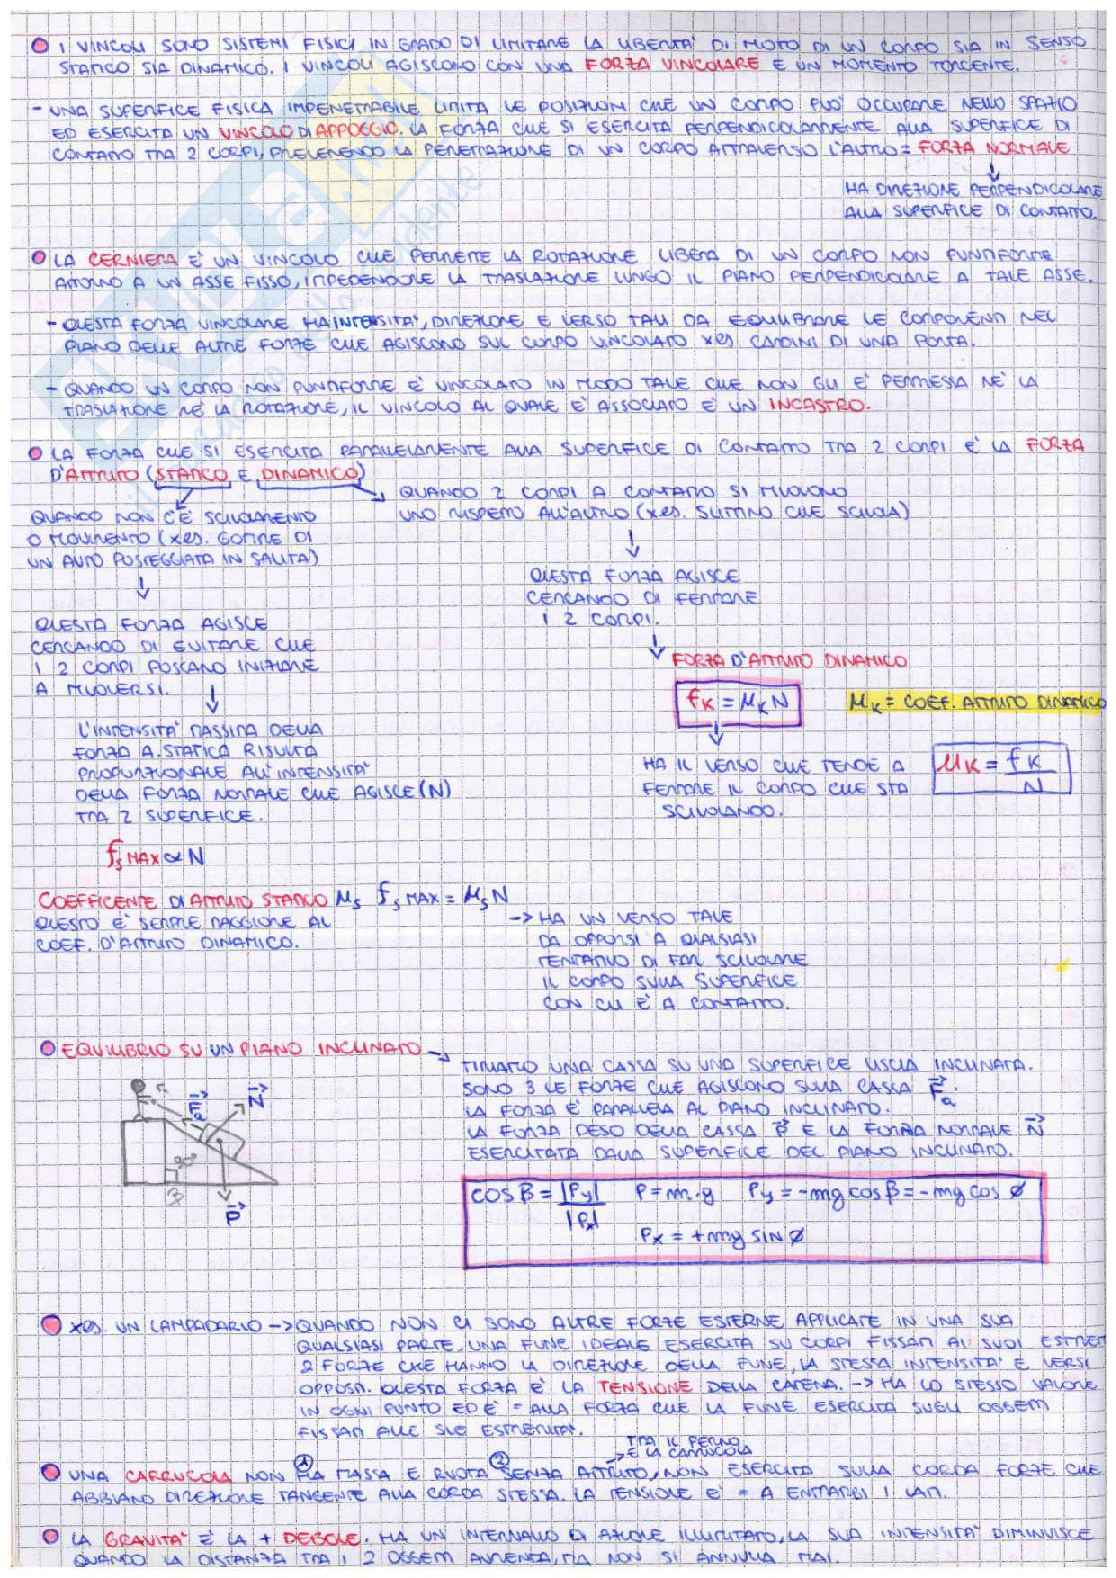 I VINCOLI SONO SISTEMI FISICI IN GRADO DI LIMITARE LA LIBERTA' DI MOTO DI UN CORPO SIA IN SENSO
STATICO SIA DINAMICO. I VINCOLI AGISCONO CON UNA FORZA VINCOLARE E UN MOMENTO TORCENTE.
- UNA SUPERFICE FISICA IMPENETRABILE LIMITA LE POSIZIONI CHE UN CORPO PUO' OCCUPARE NELLO SPAZIO
ED ESERCITA UN VINCOLO DI APPOGGIO. LA FORZA CHE SI ESERCITA PERPENDICOLARMENTE ALLA SUPERFICE DI
CONTATTO TRA 2 CORPI, PREVENENDO LA PENETRAZIONE DI UN CORPO ATTRAVERSO L'ALTRO = FORZA NORMALE
↓
HA DIREZIONE PERPENDICOLARE
ALLA SUPERFICE DI CONTATTO.
LA CERNIERA E' UN VINCOLO CHE PERMETTE LA ROTAZIONE LIBERA DI UN CORPO NON PUNTIFORME
ATTORNO A UN ASSE FISSO, IMPEDENDONE LA TRASLAZIONE LUNGO IL PIANO PERPENDICOLARE A TALE ASSE.
- QUESTA FORZA VINCOLARE HA INTENSITA', DIREZIONE E VERSO TALI DA EQUILIBRARE LE COMPONENTI NEL
PIANO DELLE ALTRE FORZE CHE AGISCONO SUL CORPO VINCOLATO xes. CARDINI DI UNA PORTA.
- QUANDO UN CORPO NON PUNTIFORME E' VINCOLATO IN MODO TALE CHE NON GLI E' PERMESSA NE' LA
TRASLAZIONE NE' LA ROTAZIONE, IL VINCOLO AL QUALE E' ASSOCIATO E' UN INCASTRO.
LA FORZA CHE SI ESERCITA PARALLELAMENTE ALLA SUPERFICE DI CONTATTO TRA 2 CORPI E' LA FORZA
D'ATTRITO (STATICO E DINAMICO)
QUANDO 2 CORPI A CONTATTO SI MUOVONO
UNO RISPETTO ALL'ALTRO (xes. SLITTINO CHE SCIVOLA)
QUANDO NON C'E' SCIVOLAMENTO
O MOVIMENTO (xes. GOMME DI
UN AUTO POSTEGGIATA IN SALITA)
↓
QUESTA FORZA AGISCE
CERCANDO DI FERMARE
I 2 CORPI.
↓
QUESTA FORZA AGISCE
CERCANDO DI EVITARE CHE
I 2 CORPI POSSANO INIZIARE
A MUOVERSI.
FORZA D'ATTRITO DINAMICO
fK = μK N
μK = COEF. ATTRITO DINAMICO
L'INTENSITA' MASSIMA DELLA
FORZA A. STATICA RISULTA
PROPORZIONALE ALL'INTENSITA'
DELLA FORZA NORMALE CHE AGISCE (N)
TRA 2 SUPERFICE.
HA IL VERSO CHE TENDE A
FERMARE IL CORPO CHE STA
SCIVOLANDO.
μK = fK / N
fs MAX ∝ N
COEFFICENTE DI ATTRITO STATICO μs fs MAX = μs N
QUESTO E' SEMPRE MAGGIORE AL
COEF. D'ATTRITO DINAMICO.
-> HA UN VERSO TALE
DA OPPORSI A QUALSIASI
TENTATIVO DI FAR SCIVOLARE
IL CORPO SULLA SUPERFICE
CON CUI E' A CONTATTO.
EQUILIBRIO SU UN PIANO INCLINATO →
TIRIAMO UNA CASSA SU UNA SUPERFICE LISCIA INCLINATA.
SONO 3 LE FORZE CHE AGISCONO SULLA CASSA F⃗a.
LA FORZA E' PARALLELA AL PIANO INCLINATO.
LA FORZA PESO DELLA CASSA P⃗ E LA FORZA NORMALE N⃗
ESERCITATA DALLA SUPERFICE DEL PIANO INCLINATO.
N⃗
P⃗
β
cos β = |Py| / |Px| P = m·g Py = -mg cos β = -mg cos ø
Px = +mg SIN ø
xes UN LAMPADARIO -> QUANDO NON CI SONO ALTRE FORZE ESTERNE APPLICATE IN UNA SUA
QUALSIASI PARTE, UNA FUNE IDEALE ESERCITA SU CORPI FISSATI AI SUOI ESTREMI
2 FORZE CHE HANNO LA DIREZIONE DELLA FUNE, LA STESSA INTENSITA' E VERSI
OPPOSTI. QUESTA FORZA E' LA TENSIONE DELLA CATENA. -> HA LO STESSO VALORE
IN OGNI PUNTO ED E' = ALLA FORZA CHE LA FUNE ESERCITA SUGLI OGGETTI
FISSATI ALLE SUE ESTREMITA'.
TRA IL PERNO
E LA CARRUCOLA
UNA CARRUCOLA NON HA MASSA E RUOTA SENZA ATTRITO, NON ESERCITA SULLA CORDA FORZE CHE
ABBIANO DIREZIONE TANGENTE ALLA CORDA STESSA. LA TENSIONE E' = A ENTRAMBI I LATI.
LA GRAVITA' E' LA + DEBOLE. HA UN INTERVALLO DI AZIONE ILLIMITATO, LA SUA INTENSITA' DIMINUISCE
QUANDO LA DISTANZA TRA I 2 OGGETTI AUMENTA, MA NON SI ANNULLA MAI.